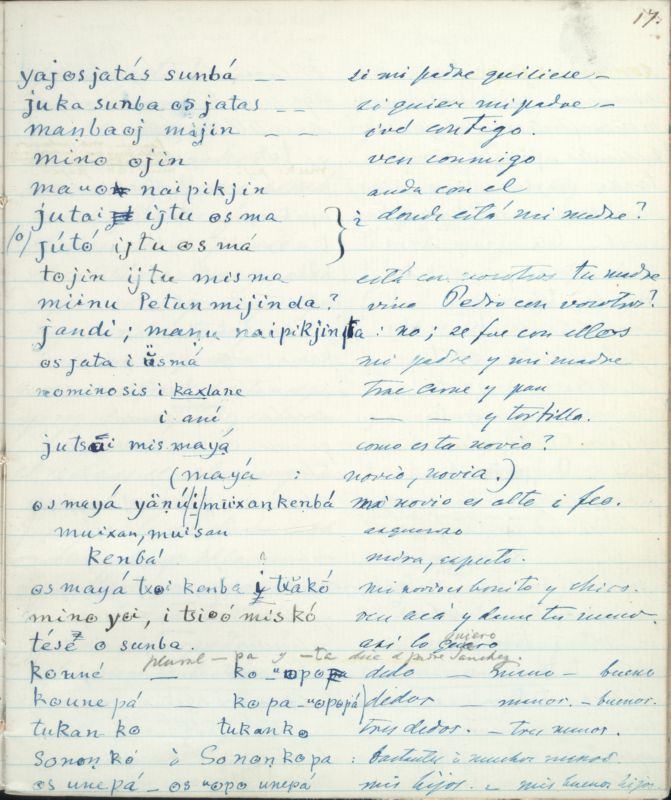 17.
yajosjatás sunbá — — si mi padre quiliese —
juka sunba os jatas — — si quier mi padre —
maṇbaoj mijin — — iré contigo.
mino ojin ven conmigo
naipikjin anda con el
jutai ijtu os ma } ¿ donde está mi madre?
/o/ jútó ijtu os má
tojin ijtu misma está con nosotros tu madre
miinu Petunmijinda? vino Pedro con vosotros?
jandi; maṇu naipikjinta : no; se fue con ellos
osjata i üsmá mi padre y mi madre
nominosis i kaxlane trae carne y pan
i aní — — y tortilla.
jutsái mis mayá como esta novio?
(mayá : novio, novia.)
osmayá yäṇú/i/müixaṇkenbá mi novio es alto i feo.
muixan, muisan asqueroso
kenbá mira, aspecto.
os mayá txoi kenba y txäkó mi novio es bonito y chico.
mino yoi, i tsioó mis kó ven acá y dame tu mano.
tésé o sunba. asi lo quiero
plural — pa y —ta dice el padre Sanchez.
konné — ko dedo — mano — bueno
kounepá — kopa-"opopá) dedos — manos. — buenos.
tukan ko tukanko tres dedos. — tres manos.
Sonoṇ kó ò Sonoṇ kopa : bastantes ò muchas manos.
os unepá — os "opo unepá mis hijos. — mis buenos hijos.